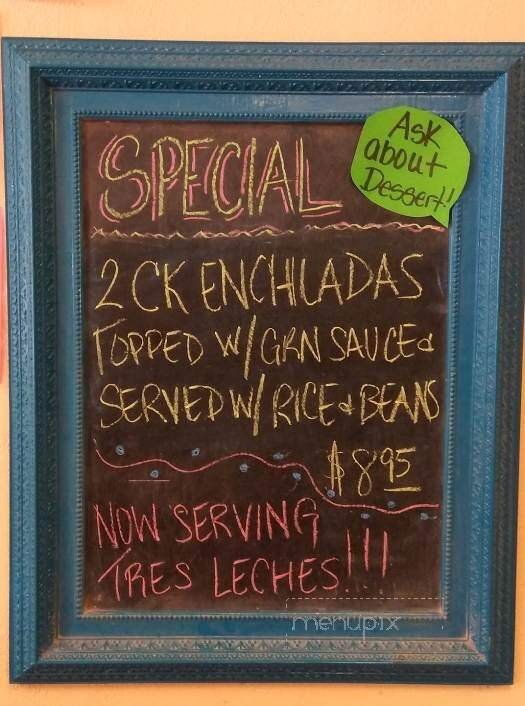 SPECIAL
Ask
about
Dessert!!
2 CK ENCHILADAS
TOPPED W/ GRN SAUCE &
SERVED W/ RICE & BEANS
$8.95
NOW SERVING
TRES LECHES!!!
menupix